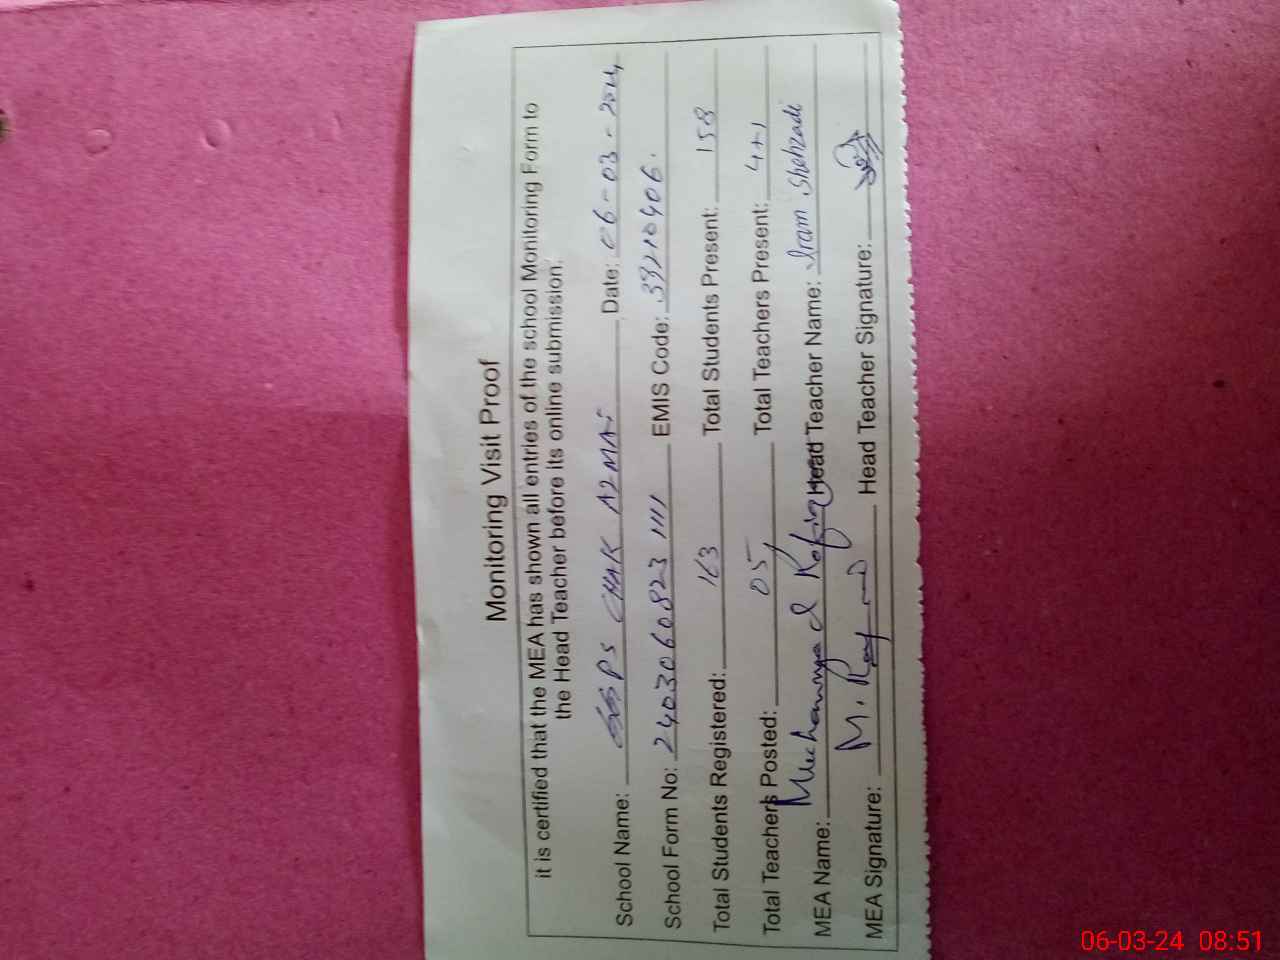 Monitoring Visit Proof
it is certified that the MEA has shown all entries of the school Monitoring Form to
the Head Teacher before its online submission.
School Name: GGPS CHAK AZMAT Date: 06-03-2024
School Form No: 24030608231111 EMIS Code: 33210406.
Total Students Registered: 163 Total Students Present: 158
Total Teachers Posted: 05 Total Teachers Present: 4+1
MEA Name: Muhammad Head Teacher Name: Iram Shehzadi
MEA Signature: M. Head Teacher Signature:
06-03-24 08:51